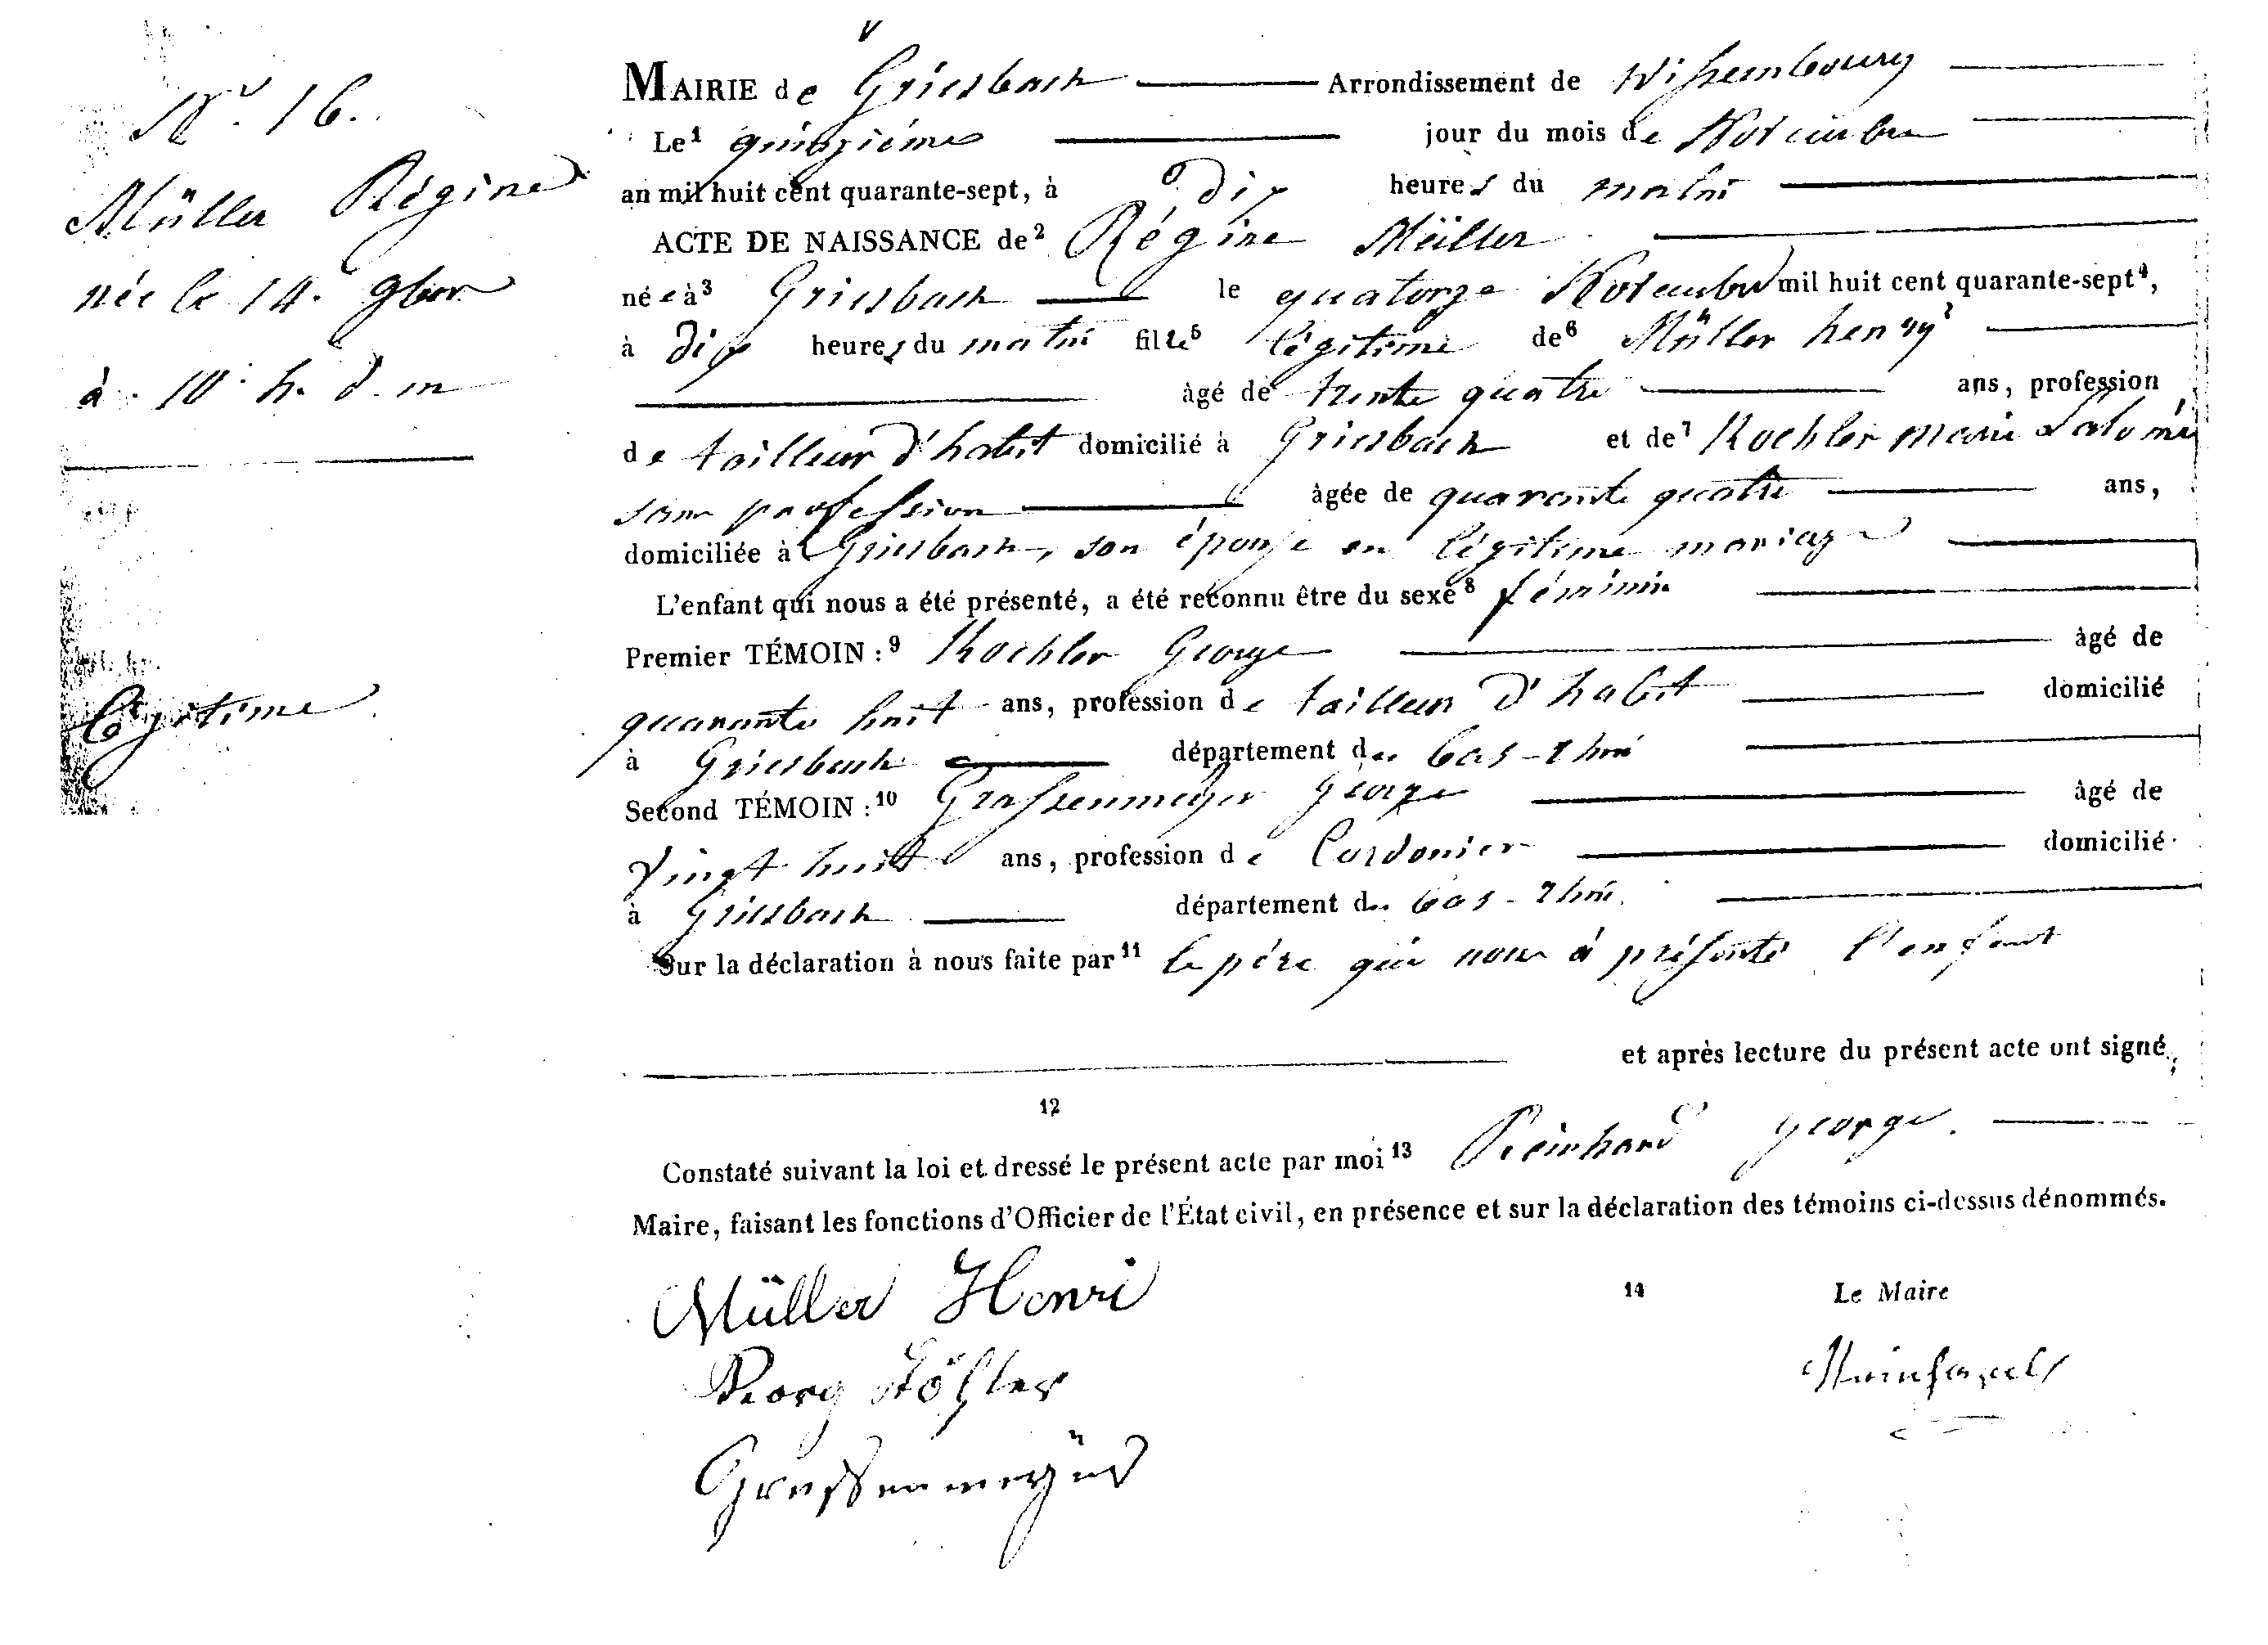 N° 16.
Müller Régine
née le 14. 9bor
à 10 h. d. m
Légitime
MAIRIE de Griesbach Arrondissement de Wissembourg
Le¹ quinzième jour du mois de Novembre
an mil huit cent quarante-sept, à dix heures du matin
ACTE DE NAISSANCE de² Régine Müller
née à³ Griesbach le quatorze Novembre mil huit cent quarante-sept⁴,
à dix heures du matin fille⁵ légitime de⁶ Müller henry
âgé de trente quatre ans, profession
de tailleur d'habit domicilié à Griesbach et de⁷ Koehler marie Salomé
sans profession âgée de quarante quatre ans,
domiciliée à Griesbach, son épouse en légitime mariage
L'enfant qui nous a été présenté, a été reconnu être du sexe⁸ féminin
Premier TÉMOIN :⁹ Koehler George âgé de
quarante huit ans, profession de tailleur d'habit domicilié
à Griesbach département du bas-rhin
Second TÉMOIN :¹⁰ Grassenmeyer George âgé de
vingt huit ans, profession de Cordonier domicilié
à Griesbach département du bas-rhin.
Sur la déclaration à nous faite par¹¹ le père qui nous à présenté l'enfant
et après lecture du présent acte ont signé,
12
Constaté suivant la loi et dressé le présent acte par moi¹³ Reinhard George.
Maire, faisant les fonctions d'Officier de l'État civil, en présence et sur la déclaration des témoins ci-dessus dénommés.
Müller Henri
14 Le Maire
Georg Köhler
Reinhard
Grassenmeyer